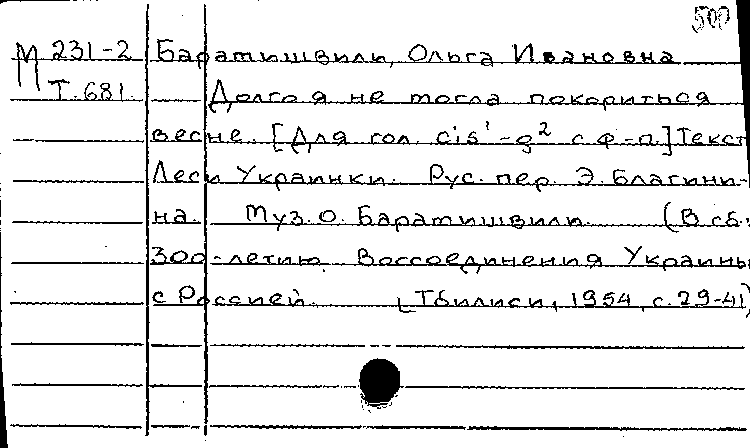 500
М 231-2 Баратишвили, Ольга Ивановна
Т.681. Долго я не могла покориться
весне. [Для гол. cis¹-g² с ф-п.] Текст
Леси Украинки. Рус. пер. Э. Благини-
на. Муз. О. Баратишвили. (В сб.:
300-летию Воссоединения Украины
с Россией. [Тбилиси, 1954, с. 29-41)